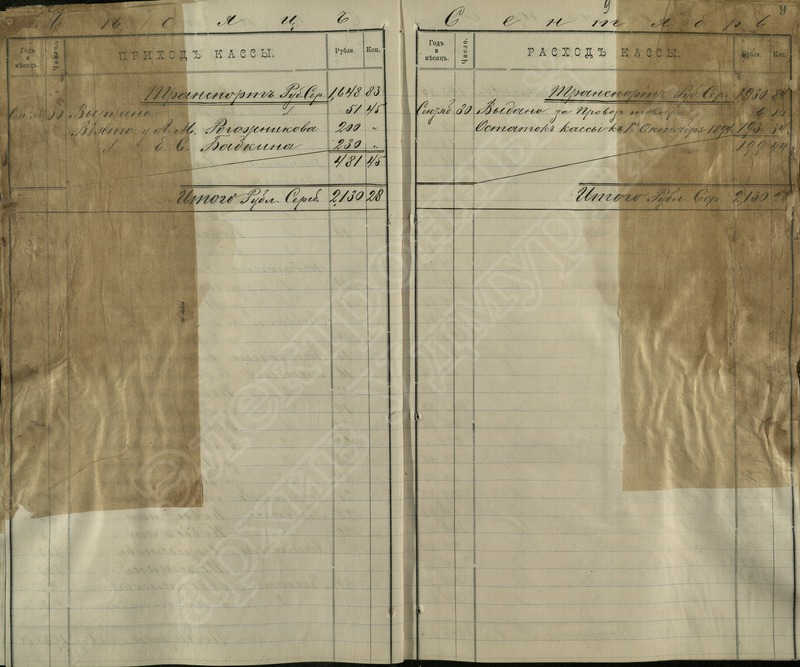 Мѣсяцъ
Годъ и мѣсяцъ.
Число.
ПРИХОДЪ КАССЫ.
Рубли.
Коп.
Транспортъ Руб. Сер. 1,648 83
30 Выручено 51 45
Взято у А. М. Рогожникова 200 "
Е. С. Бабкина 230 "
481 45
Итого Рубл. Сереб. 2,130 28
9
Сентябрь
Годъ и мѣсяцъ.
Число.
РАСХОДЪ КАССЫ.
Рубли.
Коп.
Транспортъ Руб. Сер. 1930
30 Выдано за Провоз товара 6
Остатокъ кассы къ 1 Октября 1894 193
Итого Рубл. Сер. 2,130 28